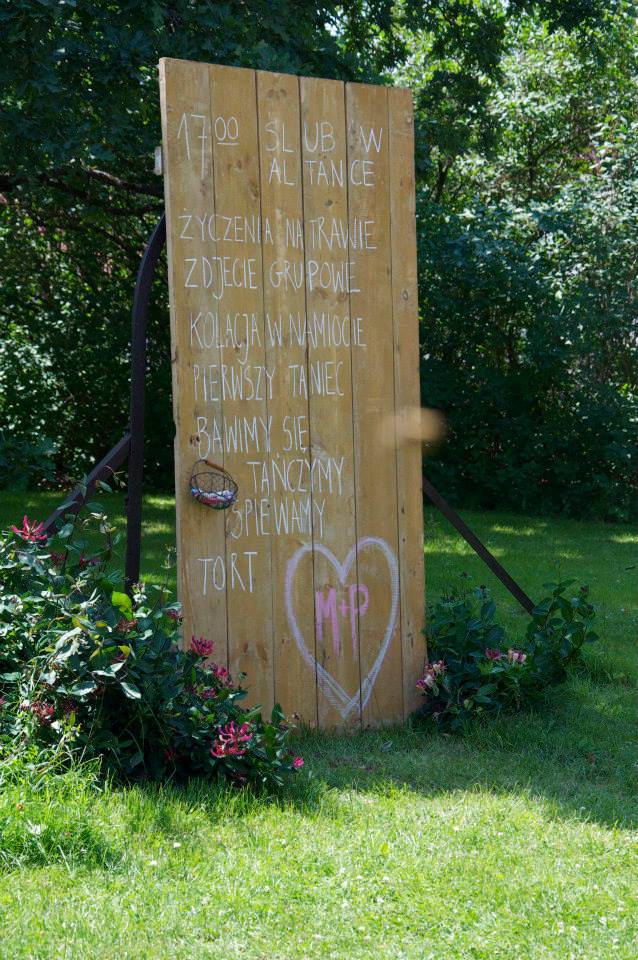 17 00 ŚLUB W
ALTANCE
ŻYCZENIA NA TRAWIE
ZDJECIE GRUPOWE
KOLACJA W NAMIOCIE
PIERWSZY TANIEC
BAWIMY SIĘ
TAŃCZYMY
ŚPIEWAMY
TORT
M+P